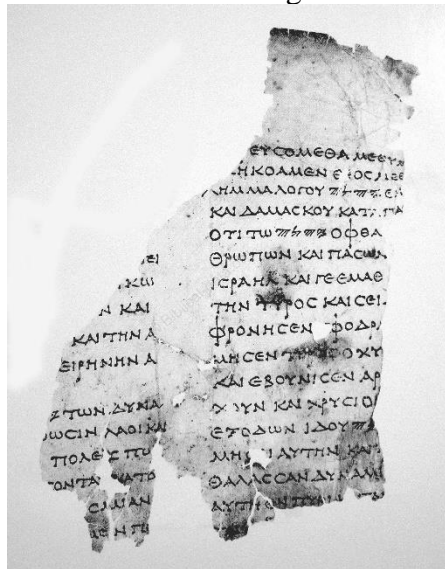 ΕΙ
ΚΩ
Ν ΚΑΙ
ΚΑΙ ΤΗΝ Α
ΕΙΡΗΝΗΝ Α
ΤΩΝ ΔΥΝΑ
ΩϹΙΝ ΛΑΟΙ ΚΑΙ
ΠΟΛΕΙϹ
ΟΝΤΑΙ
ΕΥϹΟΜΕΘΑ ΜΕΘ ΥΜ
ΗΚΟΑΜΕΝ
ΛΗΜΜΑ ΛΟΓΟΥ 𐤉𐤄𐤅𐤄 ΕΝ
ΚΑΙ ΔΑΜΑϹΚΟΥ ΚΑΤΑΠΑ
ΟΤΙ ΤΩ 𐤉𐤄𐤅𐤄 ΟΦΘΑ
ΘΡΩΠΩΝ ΚΑΙ ΠΑϹΩΝ
ΙϹΡΑΗΛ ΚΑΙ ΓΕ ΕΜΑΘ
ΤΗΝ ΤΥΡΟϹ ΚΑΙ ϹΕΙ
ΦΡΟΝΗϹΕΝ ϹΦΟΔΡ
ΜΗϹΕΝ ΤΥΡΟϹ ΟΧΥ
ΚΑΙ ΕΒΟΥΝΙϹΕΝ ΑΡ
ΧΟΥΝ ΚΑΙ ΧΡΥϹΙΟ
ΕΞΟΔΩΝ ΙΔΟΥ
ΑΥΤΗΝ ΚΑΙ
ΘΑΛΑϹϹΑΝ ΔΥΝΑΜΙ
ΑΥΤΗ ΕΝ ΠΥΡΙ